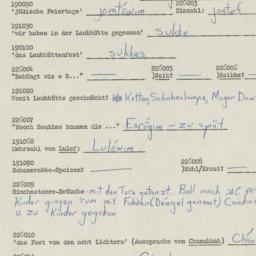 190090 225003
'Jüdische Feiertage' jontówim Einzahl: jontef
191030
'wir haben in der Laubhütte gegessen' sukke
190100
'das Laubhüttenfest' sukkes
225004 225005 225006
"Behüngt wie e S..." )Seik! )Seikes!
191020
Womit Laubhütte geschmückt? Ketten, Schabeslampe, Mogen Dow
225007
"Hooch Sukkes kommen die ..." Esrógim - zu spät
191050
Mehrzahl von Lulef: Lulówim
191090 225008
Schmorobbe-Speisen? )Kohl/Kraut?
225009
Simchastoore-Bräuche - mit den Tora getanzt. Ball nach
Kinder gingen 'rum mit Fahnen (Deegel genannt) Candies
u. zu Kinder gegeben
225010
'das Fest von den acht Lichtern' (Aussprache von Chanukkah)